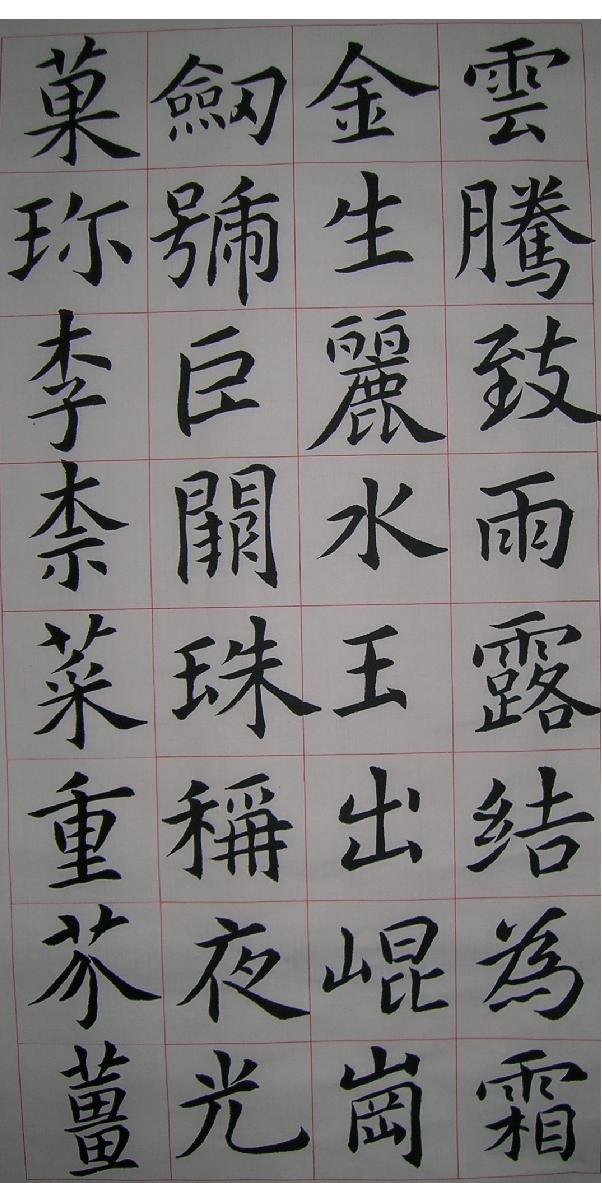 雲騰致雨露結為霜
金生麗水王出崐崗
劔號巨闕珠稱夜光
菓珎李柰菜重芥薑